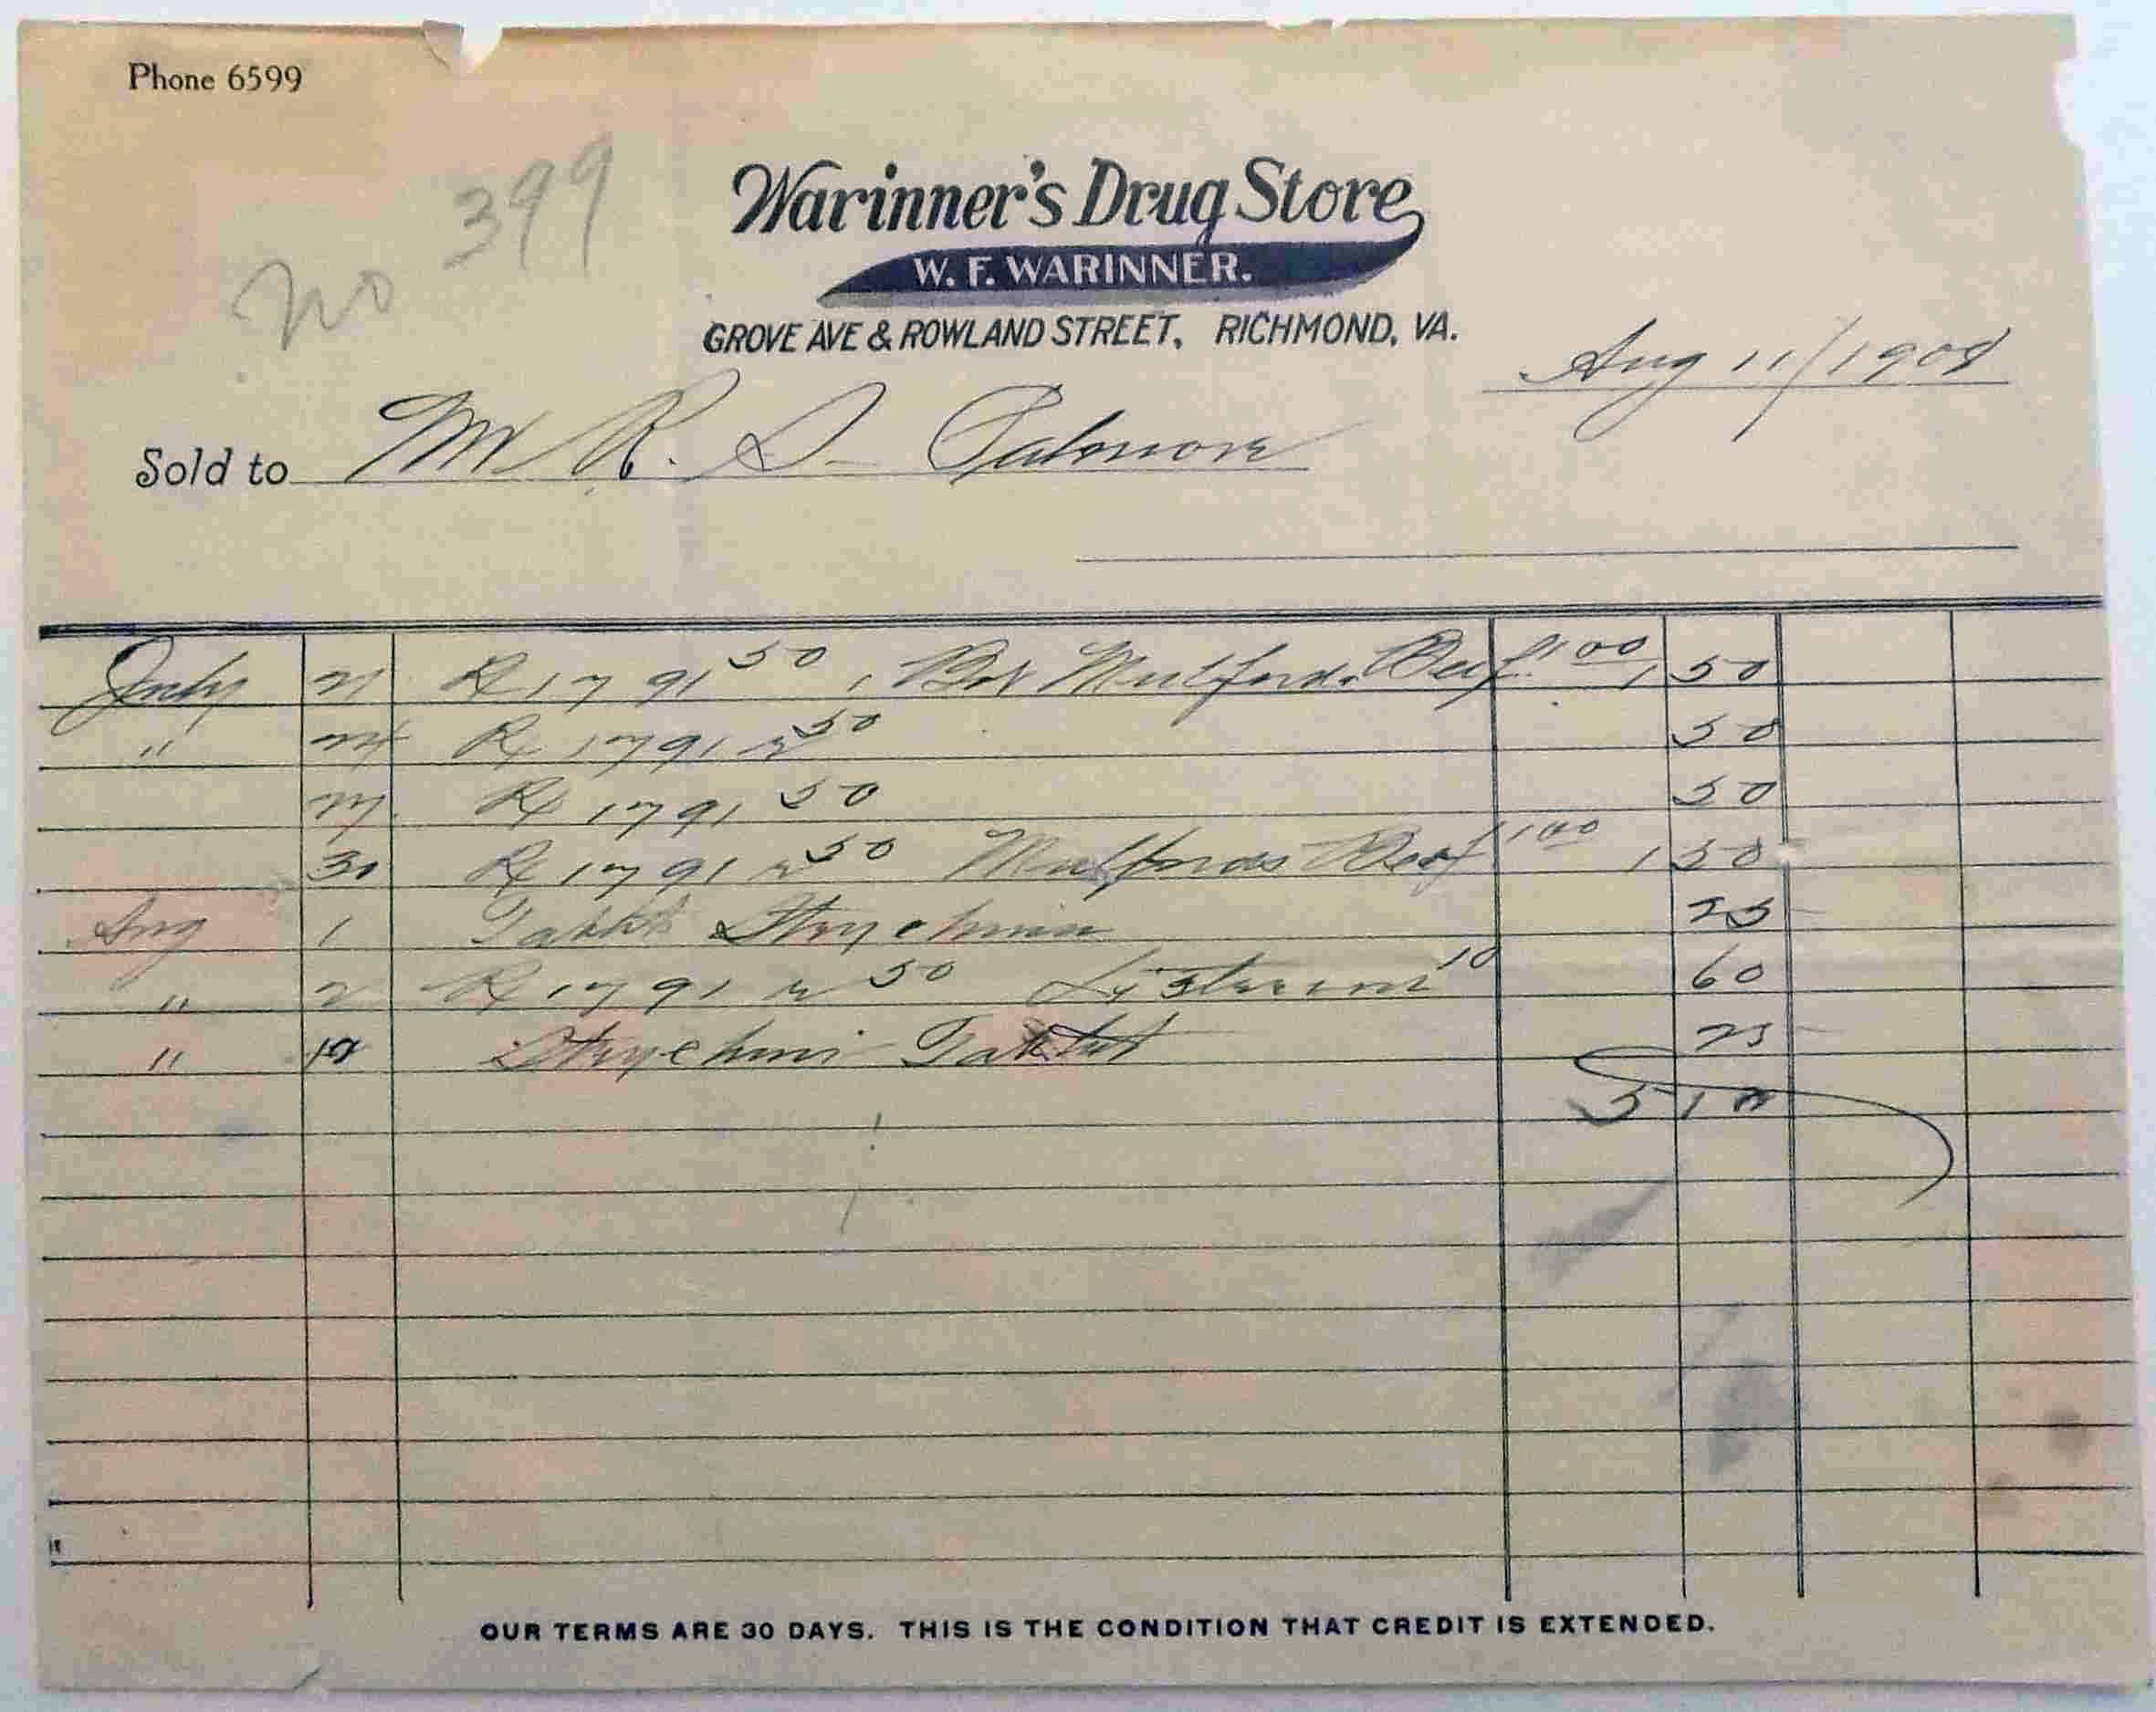 Phone 6599
No 399
Warinner's Drug Store
W. F. WARINNER.
GROVE AVE & ROWLAND STREET, RICHMOND, VA.
Aug 11/1908
Sold to Mr R. D. Palmore
July 21 Rx 1791 50 1 Box Mulfords Beef 1 00 1 50
" 24 Rx 1791 50 50
27 Rx 1791 50 50
30 Rx 1791 50 Mulfords Beef 1 00 1 50
Aug 1 Tablts Strychnia 25
" 2 Rx 1791 50 Listerine 10 60
" 10 Strychni Tablts 25
5 10
OUR TERMS ARE 30 DAYS. THIS IS THE CONDITION THAT CREDIT IS EXTENDED.